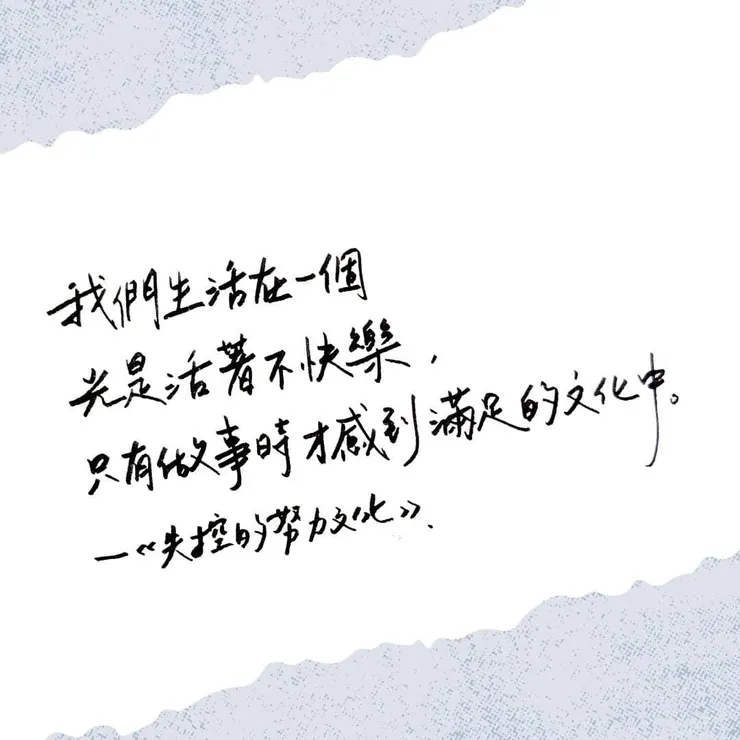 我們生活在一個
光是活著不快樂，
只有做事時才感到滿足的文化中。
—《失控的努力文化》